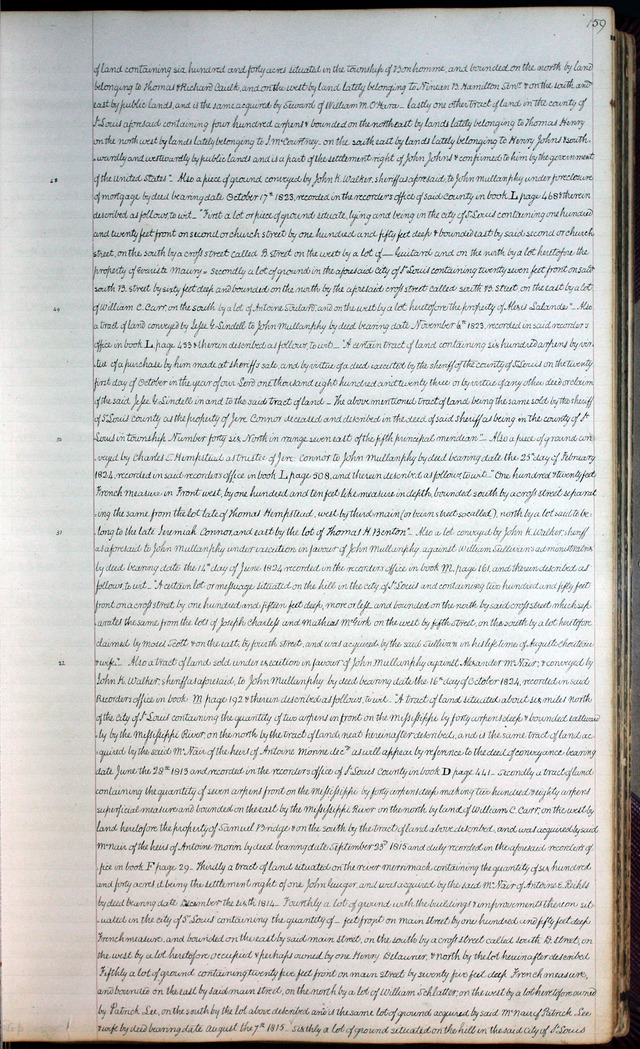 159
of land containing six hundred and forty acres situated in the township of Bonhomme, and bounded on the north by land
belonging to Thomas & Richard Caulk, and on the west by land lately belonging to Ninean B. Hamilton Senr & on the south and
east by public lands, and is the same acquired by Seward of William M. O'Hara - Lastly one other tract of land in the county of
St Louis aforesaid containing four hundred arpens & bounded on the northeast by lands lately belonging to Thomas Henry
on the north west by lands lately belonging to J. McCourtney, on the south east by lands lately belonging to Henry Johns & south-
wardly and westwardly by public lands and is a part of the settlement right of John Johns & confirmed to him by the government
of the United States" Also a piece of ground conveyed by John K. Walker, sheriff as aforesaid, to John Mullanphy under foreclosure
of mortgage by deed bearing date October 17th 1823, recorded in the recorders office of said County in book L page 468 & therein
described as follows, to wit - "First a lot or piece of ground situate, lying and being in the city of St Louis containing one hundred
and twenty feet front on second or church street by one hundred and fifty feet deep & bounded east by said second or church
street, on the south by a cross street called B street on the west by a lot of — Guitard and on the north by a lot heretofore the
property of Evariste Maury - Secondly a lot of ground in the aforesaid city of St Louis containing twenty seven feet front on said
south B. street by sixty feet deep and bounded on the north by the aforesaid cross street called south B. street on the east by a lot
49 of William C. Carr, on the south by a lot of Antoine Soulard, and on the west by a lot heretofore the property of Alexis Lalande" Also
a tract of land conveyed by Jesse G. Lindell to John Mullanphy by deed bearing date November 6th 1823, recorded in said recorders
office in book L page 433 & therein described as follows, to wit - "A certain tract of land containing six hundred arpens by vir-
tue of a purchase by him made at sheriff's sale, and by virtue of a deed executed by the sheriff of the county of St Louis on the twenty
first day of October in the year of our Lord one thousand eight hundred and twenty three or by virtue of any other deed or claim
of the said Jesse G. Lindell in and to the said tract of land - The above mentioned tract of land being the same sold by the sheriff
of St Louis county as the property of Jere. Connor deceased and described in the deed of said sheriff as being in the county of St
Louis in township Number forty six North in range seven east of the fifth principal meridian" Also a piece of ground con-
veyed by Charles S. Hempstead as trustee of Jere. Connor to John Mullanphy by deed bearing date the 25th day of February
1824, recorded in said recorders office in book L page 508, and therein described as follows, to wit - "One hundred & twenty feet
French measure in Front west, by one hundred and ten feet like measure in depth, bounded south by a cross street separat-
ing the same from the lot late of Thomas Hempstead, west by third main (or barn street so called), north by a lot said to be-
31 long to the late Jeremiah Connor, and east by the lot of Thomas H. Benton" Also a lot conveyed by John K. Walker, sheriff
as aforesaid to John Mullanphy under execution in favour of John Mullanphy against William Sullivan's administrators
by deed bearing date the 14th day of June 1824, recorded in the recorders office in book M. page 161, and therein described as
follows, to wit - "A certain lot or messuage situated on the hill in the city of St Louis and containing two hundred and fifty feet
front on a cross street by one hundred and fifteen feet deep, more or less, and bounded on the north by said cross street which sep-
arates the same from the lots of Joseph Charless and Mathias McGirk on the west by fifth street, on the south by a lot heretofore
claimed by Moses Scott & on the east, by fourth street, and was acquired by the said Sullivan in his life time of August Chouteau
& wife". Also a tract of land sold under execution in favour of John Mullanphy against Alexander McNair, & conveyed by
John K. Walker, sheriff as aforesaid, to John Mullanphy by deed bearing date the 16th day of October 1824, recorded in said
Recorders office in book M. page 192 & therein described as follows, to wit - "A tract of land situated about six miles north
of the city of St Louis containing the quantity of two arpens in front on the Mississippi by forty arpens deep & bounded eastward-
ly by the Mississippi River, on the north by the tract of land next hereinafter described, and is the same tract of land ac-
quired by the said McNair of the heirs of Antoine Morine decd as will appear by reference to the deed of conveyance bearing
date June the 28th 1813 and recorded in the recorders office of St Louis County in book D page 441 - Secondly a tract of land
containing the quantity of seven arpens front on the Mississippi by forty arpens deep making two hundred & eighty arpens
superficial measure and bounded on the east by the Mississippi River on the north by land of William C. Carr, on the west by
land heretofore the property of Samuel Bridge & on the south by the tract of land above described, and was acquired by said
McNair of the heirs of Antoine Morin by deed bearing date September 23d 1815 and duly recorded in the aforesaid recorders of-
fice in book F page 29 - Thirdly a tract of land situated on the river merrimack containing the quantity of six hundred
and forty acres it being the settlement right of one John and was acquired by the said McNair of Antoine E.
by deed bearing date December the sixth 1814 - Fourthly a lot of ground with the buildings & improvements thereon sit-
uated in the city of St Louis containing the quantity of - feet front on main street by one hundred and fifty feet deep
French measure, and bounded on the east by said main street, on the south by a cross street called south B. street, on
the west by a lot heretofore occupied & perhaps owned by one Henry Delaurier, & North by the lot hereinafter described
Fifthly a lot of ground containing twenty five feet front on main street by seventy five feet deep French measure,
and bounded on the east by said main street, on the north by a lot of William Schlatter, on the west by a lot heretofore owned
by Patrick Lee, on the south by the lot above described and is the same lot of ground acquired by said McNair of Patrick Lee
& wife by deed bearing date August the 7th 1815. Sixthly a lot of ground situated on the hill in the said city of St Louis